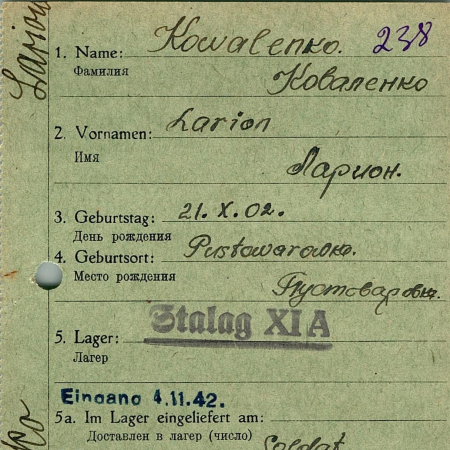 Larion
1. Name: Kowalenko. 238
Фамилия Коваленко
2. Vornamen: Larion
Имя Ларион.
3. Geburtstag: 21. X. 02.
День рождения
4. Geburtsort: Pustowarowka.
Место рождения Пустоваровка.
5. Lager: Stalag XI A
Лагер
Eingang 4.11.42.
5a. Im Lager eingeliefert am:
Доставлен в лагер (число)
Soldat